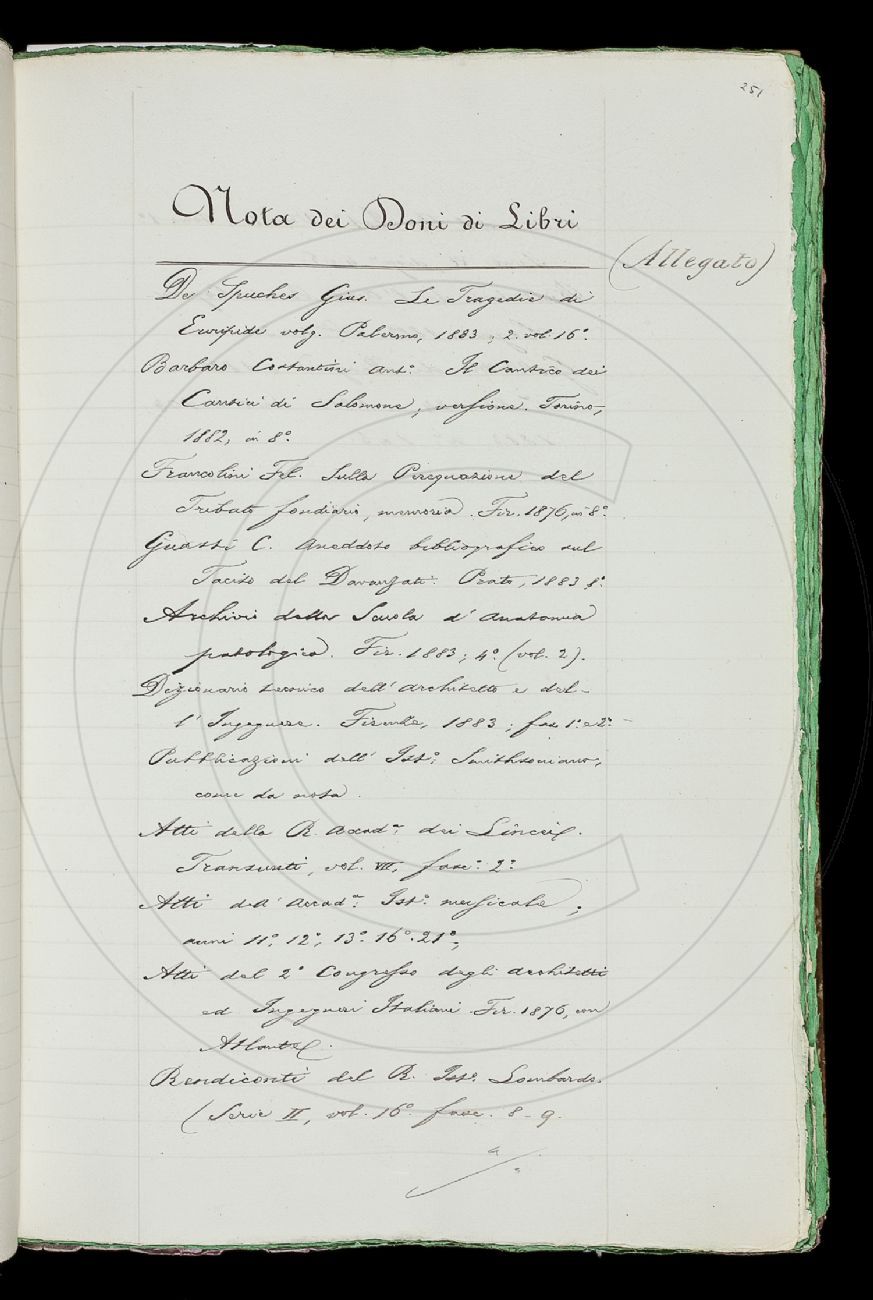 251
Nota dei Doni di Libri
(Allegato)
De Spuches Gius. Le Tragedie di
Euripide volg. Palermo, 1883; 2. vol. 16°.
Barbaro Costantini Ant.° Il Cantico dei
Cantici di Salomone, versione. Torino,
1882, in 8°.
Francolini Fel. Sulla Perequazione del
Tributo fondiario, memoria. Fir. 1876, in 8°.
Guasti C. Aneddoto bibliografico sul
Tacito del Davanzati. Prato, 1883, 8°.
Archivio della Scuola d'Anatomia
patologica. Fir. 1883; 4°. (vol. 2).
Dizionario tecnico dell'Architetto e del-
l'Ingegnere. Firenze, 1883; fasc. 1° e 2°.
Pubblicazioni dell'Ist°. Smithsoniano,
come da nota.
Atti della R. Accad.ª dei Lincei.
Transunti, vol. VII, fasc.° 2°.
Atti dell'Accad.ª Ist°. musicale;
anni 11°, 12°, 13°. 16°. 21°.
Atti del 2° Congresso degli Architetti
ed Ingegneri Italiani. Fir. 1876, con
Atlante.
Rendiconti del R. Ist°. Lombardo.
(Serie II, vol. 16° fasc. 8-9.